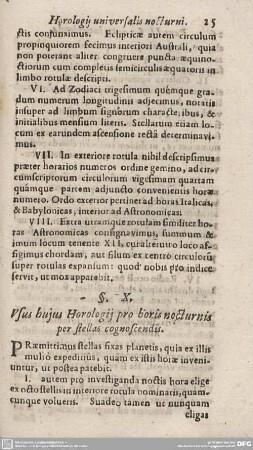 Horologij universalis nocturni. 25
ctis confunximus. Eclipticæ autem circulum
propinquiorem fecimus interiori Australi, quia
non poterant aliter congruere puncta æquino-
ctiorum cum completis semicirculis æquatoris in
limbo rotulæ descripti.
VI. Ad Zodiaci trigesimum quémque gra-
dum numerum longitudinis adjecimus, notatis
insuper ad limbum signorum characteribus, &
initialibus mensium literis. Stellarum etiam lo-
cum ex earundem ascensione rectâ determinavi-
mus.
VII. In exteriore rotula nihil descripsimus
præter horarios numeros ordine gemino, ad cir-
cumscriptorum circulorum vigesimam quartam
quámque partem adjuncto convenientis horæ
numero. Ordo exterior pertinet ad horas Italicas,
& Babylonicas, interior ad Astronomicas.
VIII. Extra utramque rotulam similiter ho-
ras Astronomicas consignavimus, summum &
imum locum tenente XII, cui alterutro loco af-
figimus chordam, aut filum ex centro circulorum
super rotulas expansum: quod nobis pro indice
servit, ut mox apparebit.
§. X.
Usus hujus Horologij pro horis nocturnis
per stellas cognoscendis.
PRæmittimus stellas fixas planetis, quia ex illis
multò expeditius, quàm ex istis horæ inveni-
untur, ut postea patebit.
I. autem pro investiganda noctis hora elige
ex octo stellis in interiore rotula nominatis, quam-
cunque volueris. Suadeo tamen ut nunquam
eligas